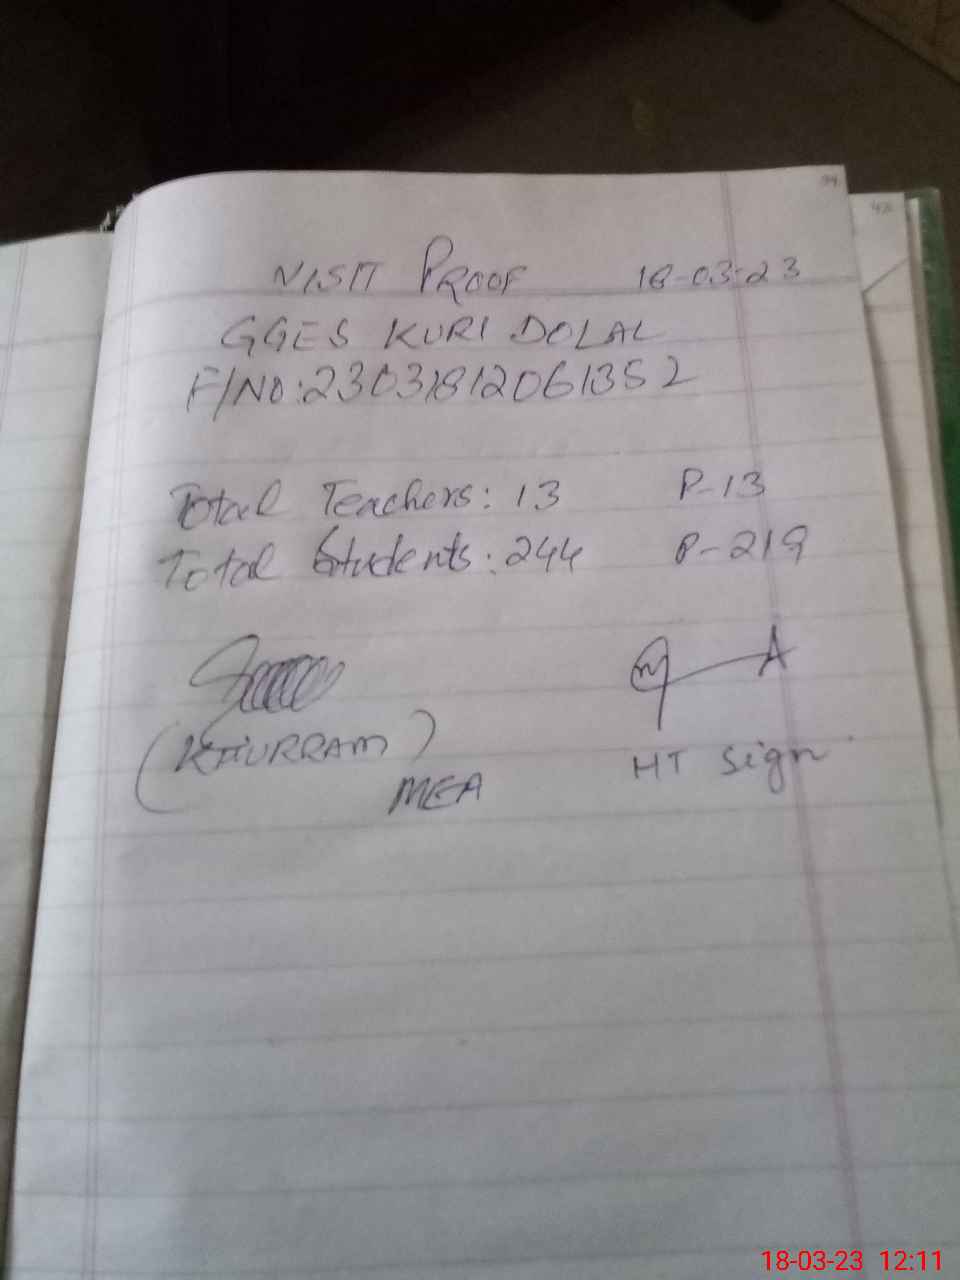 VISIT PROOF 18-03-23
GGES KURI DOLAL
F/NO:23031812061352
Total Teachers: 13 P-13
Total Students: 244 P-219
(KHURRAM)
MEA
HT Sign
18-03-23 12:11